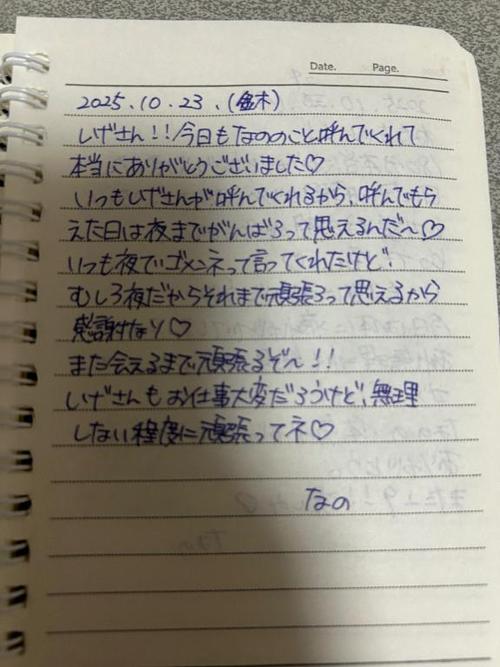 Date. Page.
2025.10.23.(木)
しげさん!!今日もなののこと呼んでくれて
本当にありがとうございました♡
いつもしげさんが呼んでくれるから、呼んでもら
えた日は夜までがんばろって思えるんだ〜♡
いつも夜でゴメンネって言ってくれたけど!
むしろ夜だからそれまで頑張ろって思えるから
感謝けなり♡
また会えるまで頑張るぞ〜!!
しげさんもお仕事大変だろうけど、無理
しない程度に頑張ってネ♡
なの